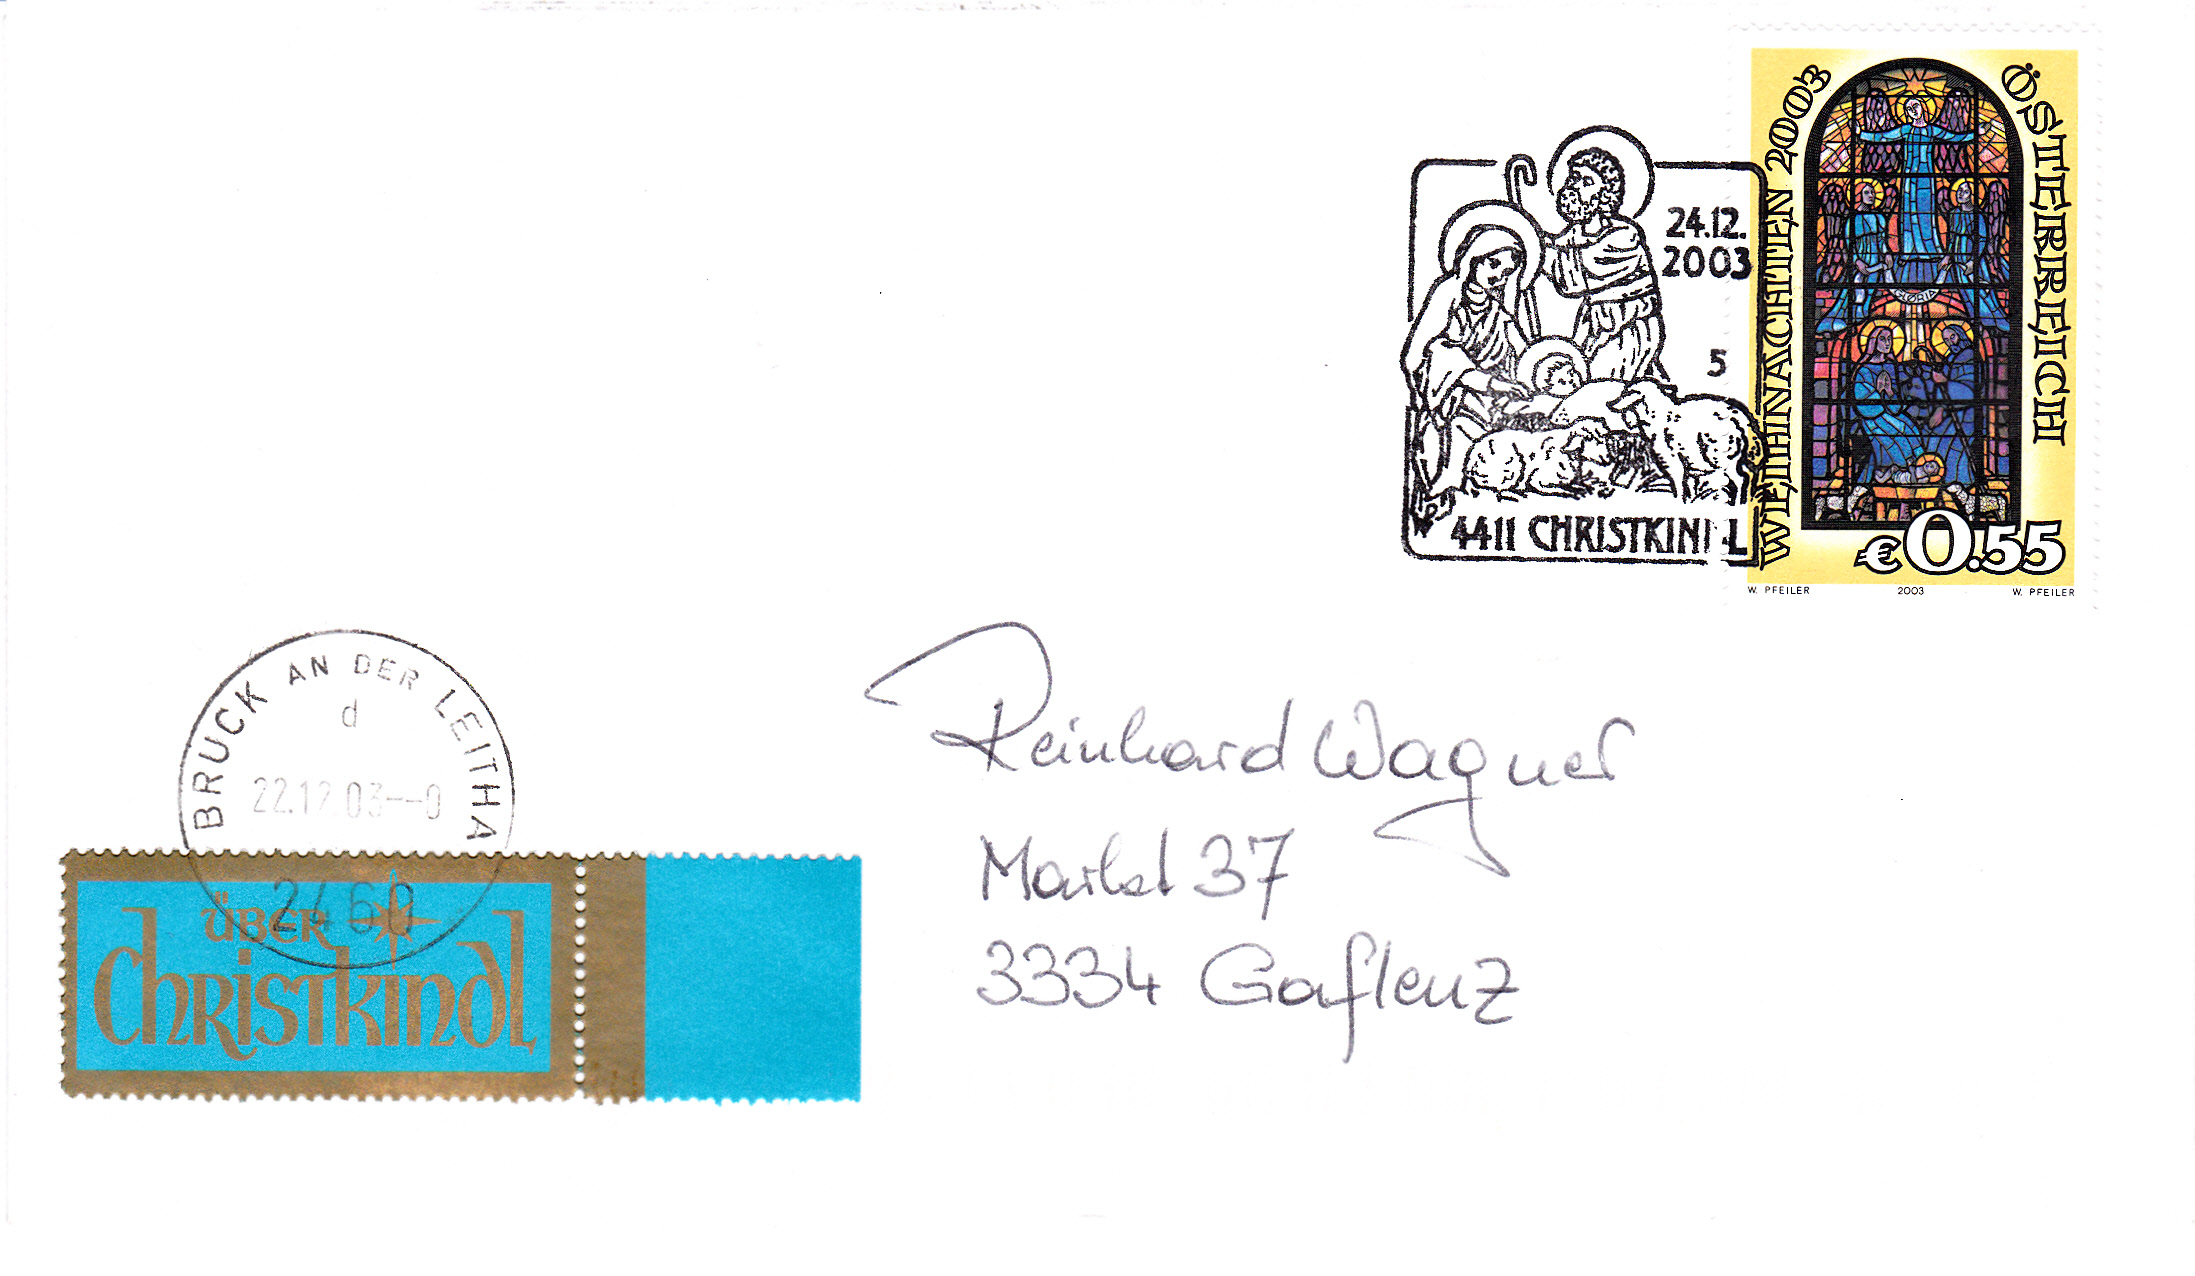 WEIHNACHTEN 2003
ÖSTERREICH
GLORIA
€0.55
W. PFEILER 2003 W. PFEILER
24.12.
2003
5
4411 CHRISTKINDL
BRUCK AN DER LEITHA
d
22.12.03--0
2460
ÜBER
Christkindl
Reinhard Wagner
Markt 37
3334 Gaflenz